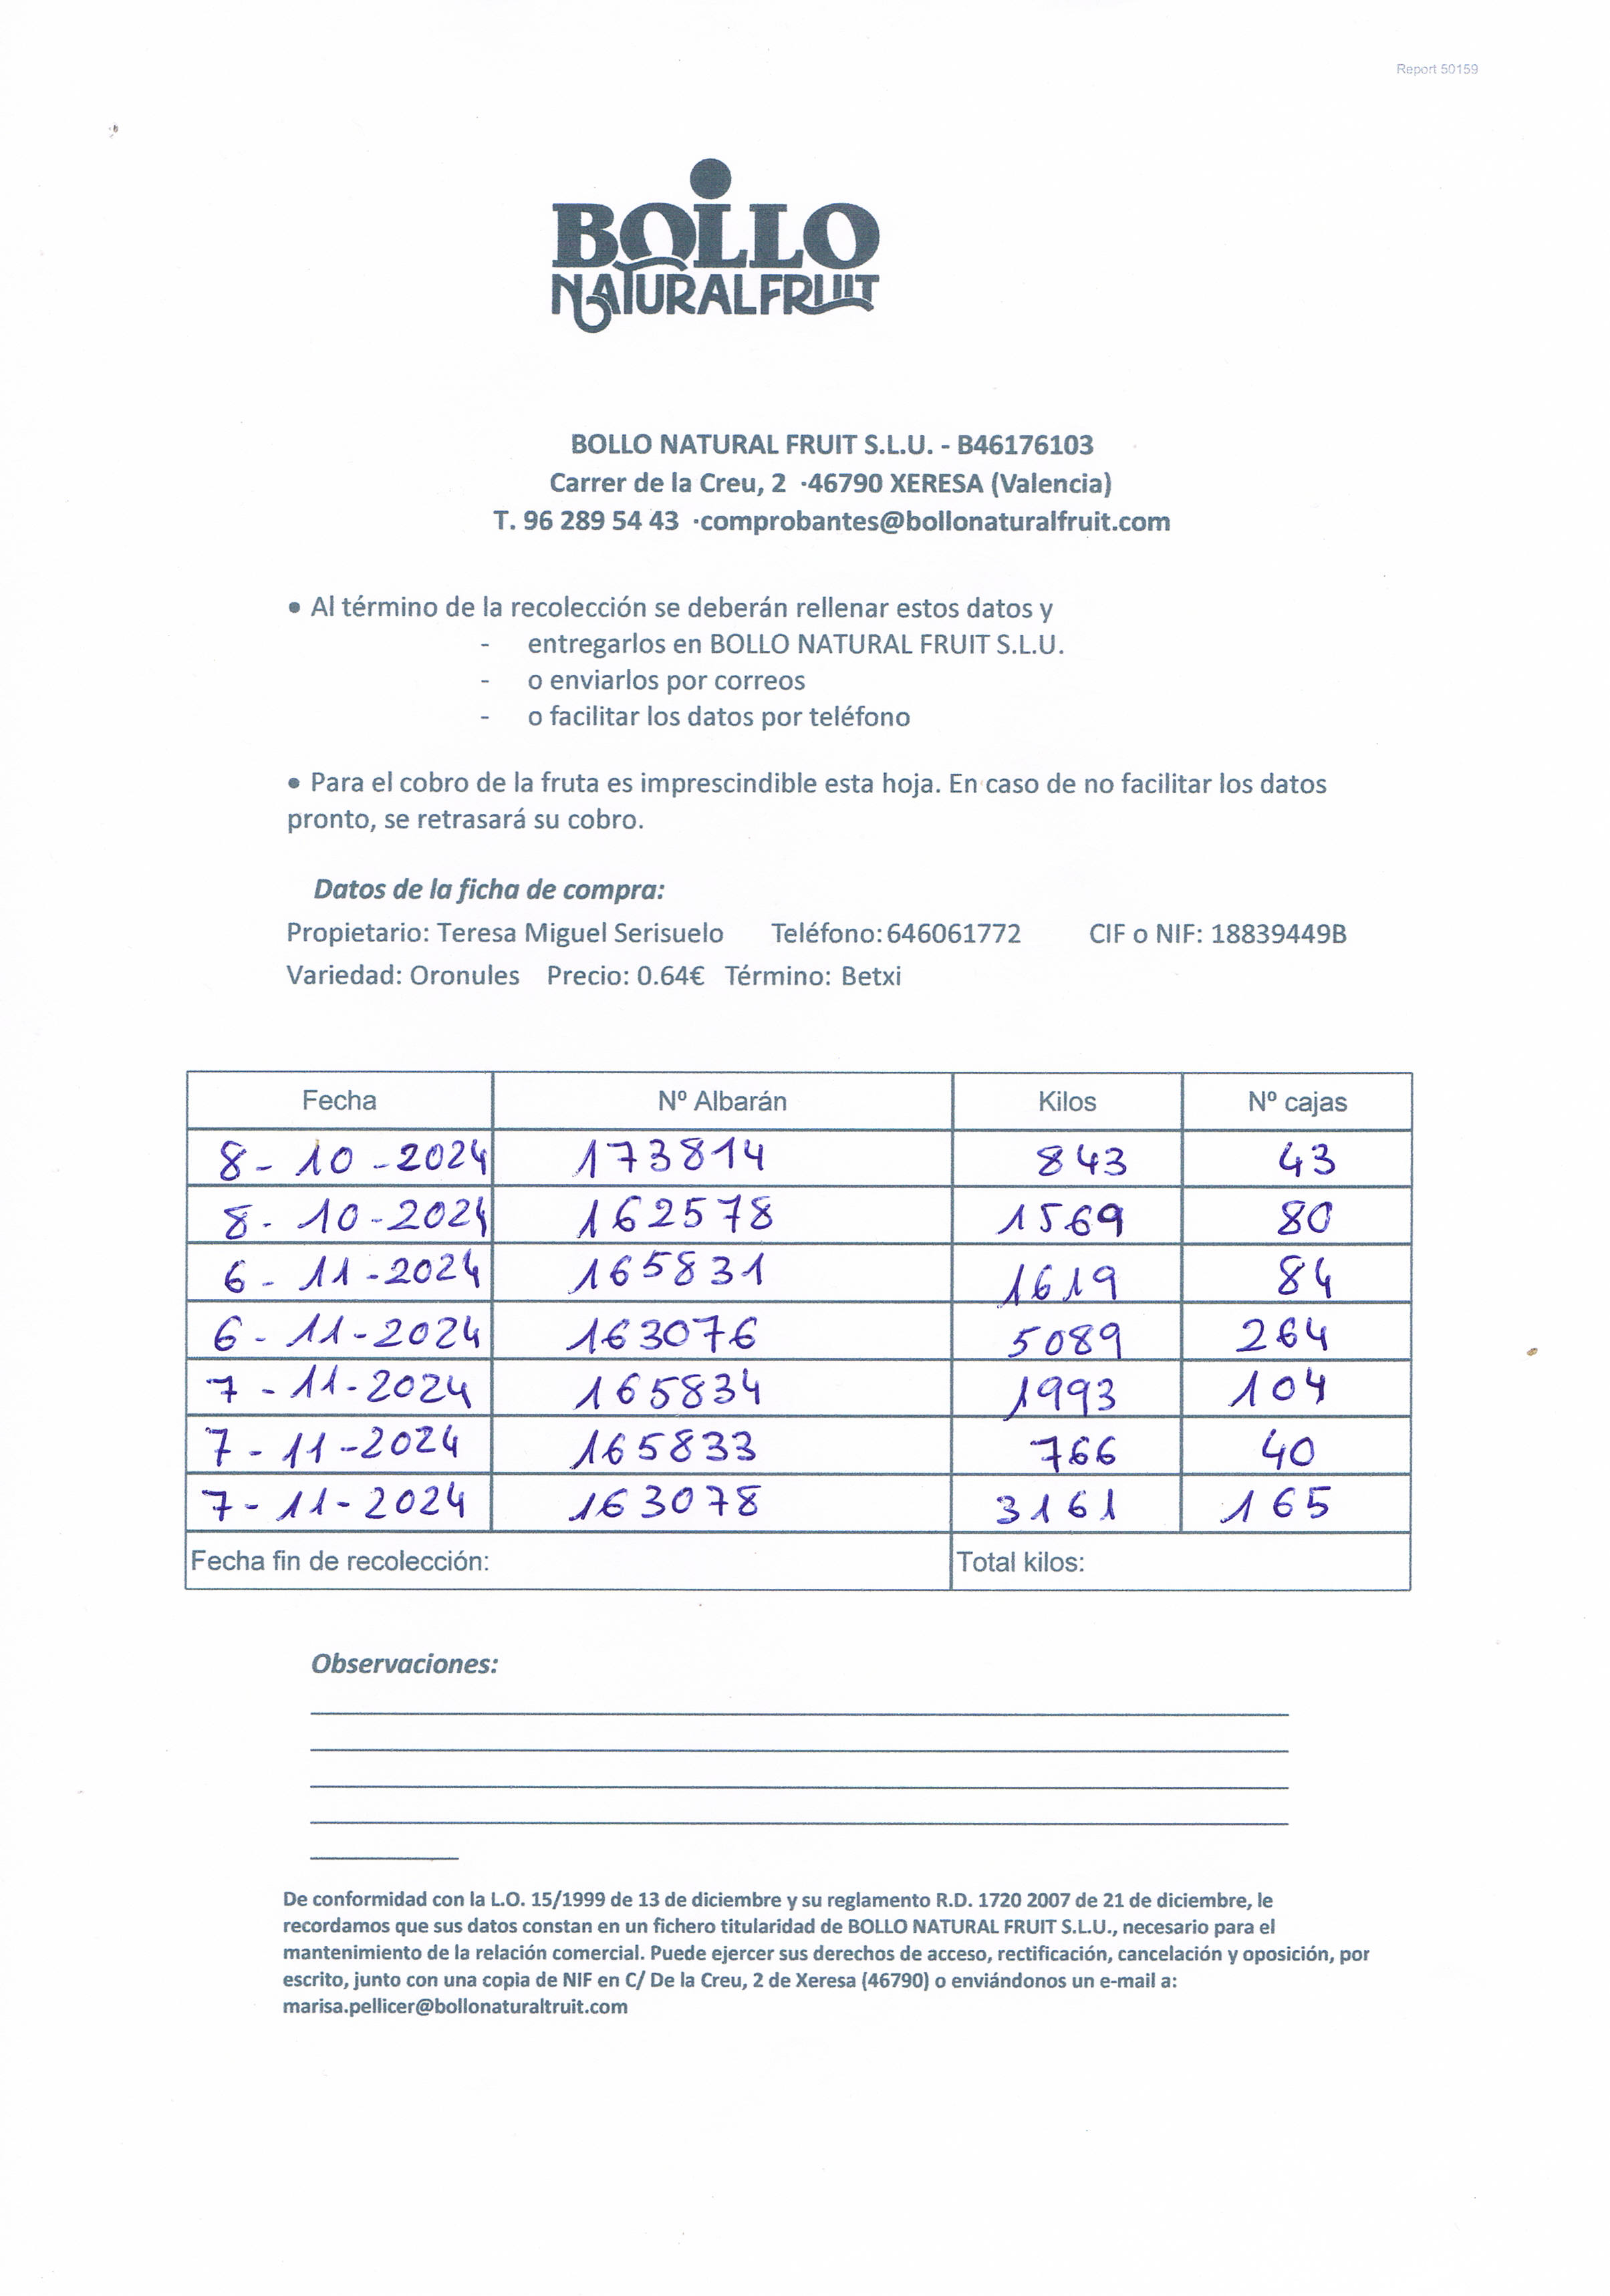 Report 50159
BOLLO
NATURALFRUIT
BOLLO NATURAL FRUIT S.L.U. - B46176103
Carrer de la Creu, 2 ·46790 XERESA (Valencia)
T. 96 289 54 43 ·comprobantes@bollonaturalfruit.com
• Al término de la recolección se deberán rellenar estos datos y
- entregarlos en BOLLO NATURAL FRUIT S.L.U.
- o enviarlos por correos
- o facilitar los datos por teléfono
• Para el cobro de la fruta es imprescindible esta hoja. En caso de no facilitar los datos
pronto, se retrasará su cobro.
Datos de la ficha de compra:
Propietario: Teresa Miguel Serisuelo Teléfono: 646061772 CIF o NIF: 18839449B
Variedad: Oronules Precio: 0.64€ Término: Betxi
Fecha Nº Albarán Kilos Nº cajas
8-10-2024 173814 843 43
8-10-2024 162578 1569 80
6-11-2024 165831 1619 84
6-11-2024 163076 5089 264
7-11-2024 165834 1993 104
7-11-2024 165833 766 40
7-11-2024 163078 3161 165
Fecha fin de recolección: Total kilos:
Observaciones:
De conformidad con la L.O. 15/1999 de 13 de diciembre y su reglamento R.D. 1720 2007 de 21 de diciembre, le
recordamos que sus datos constan en un fichero titularidad de BOLLO NATURAL FRUIT S.L.U., necesario para el
mantenimiento de la relación comercial. Puede ejercer sus derechos de acceso, rectificación, cancelación y oposición, por
escrito, junto con una copia de NIF en C/ De la Creu, 2 de Xeresa (46790) o enviándonos un e-mail a:
marisa.pellicer@bollonaturaltruit.com